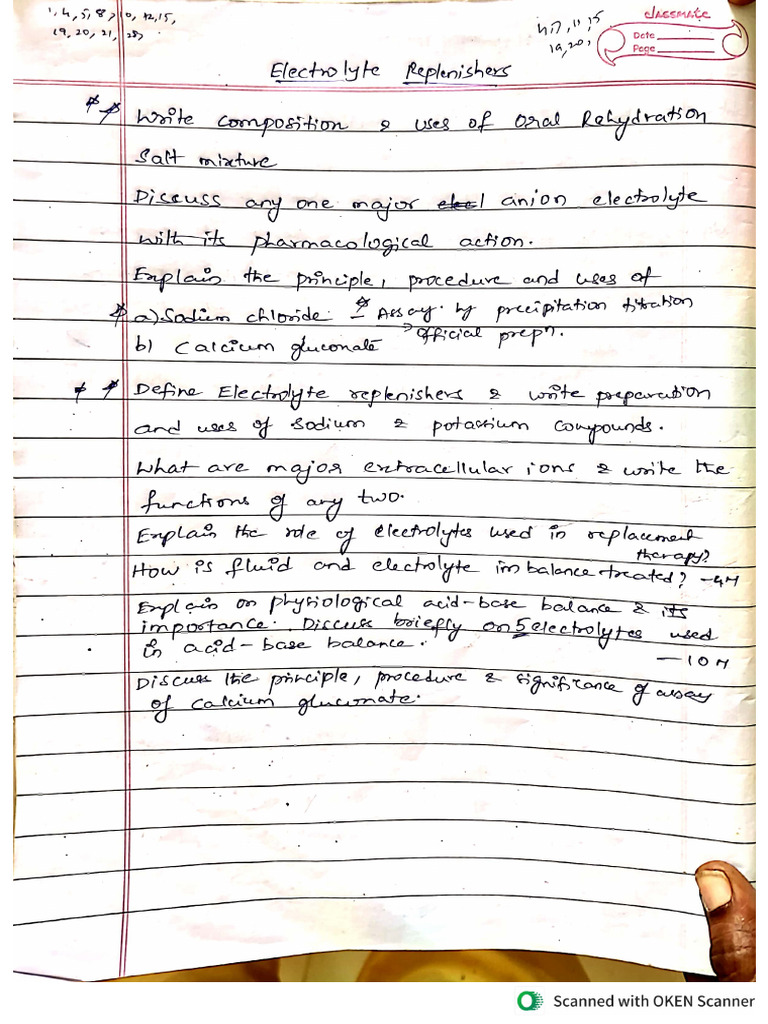 1, 4, 5, 8, 10, 12, 15,
19, 20, 21, 28,
4, 7, 11, 15
19, 20,
classmate
Date
Page
Electrolyte Replenishers
Write composition & uses of Oral Rehydration
Salt mixture
Discuss any one major anion electrolyte
with its pharmacological action.
Explain the principle, procedure and uses of
a) Sodium chloride - Assay by precipitation titration
b) Calcium gluconate → official prepn.
Define Electrolyte replenishers & write preparation
and uses of Sodium & potassium compounds.
What are major extracellular ions & write the
functions of any two.
Explain the role of electrolytes used in replacement
therapy?
How is fluid and electrolyte imbalance treated? - 4M
Explain on physiological acid-base balance & its
importance. Discuss briefly on 5 electrolytes used
in acid-base balance.
- 10M
Discuss the principle, procedure & significance of assay
of calcium gluconate.
Scanned with OKEN Scanner